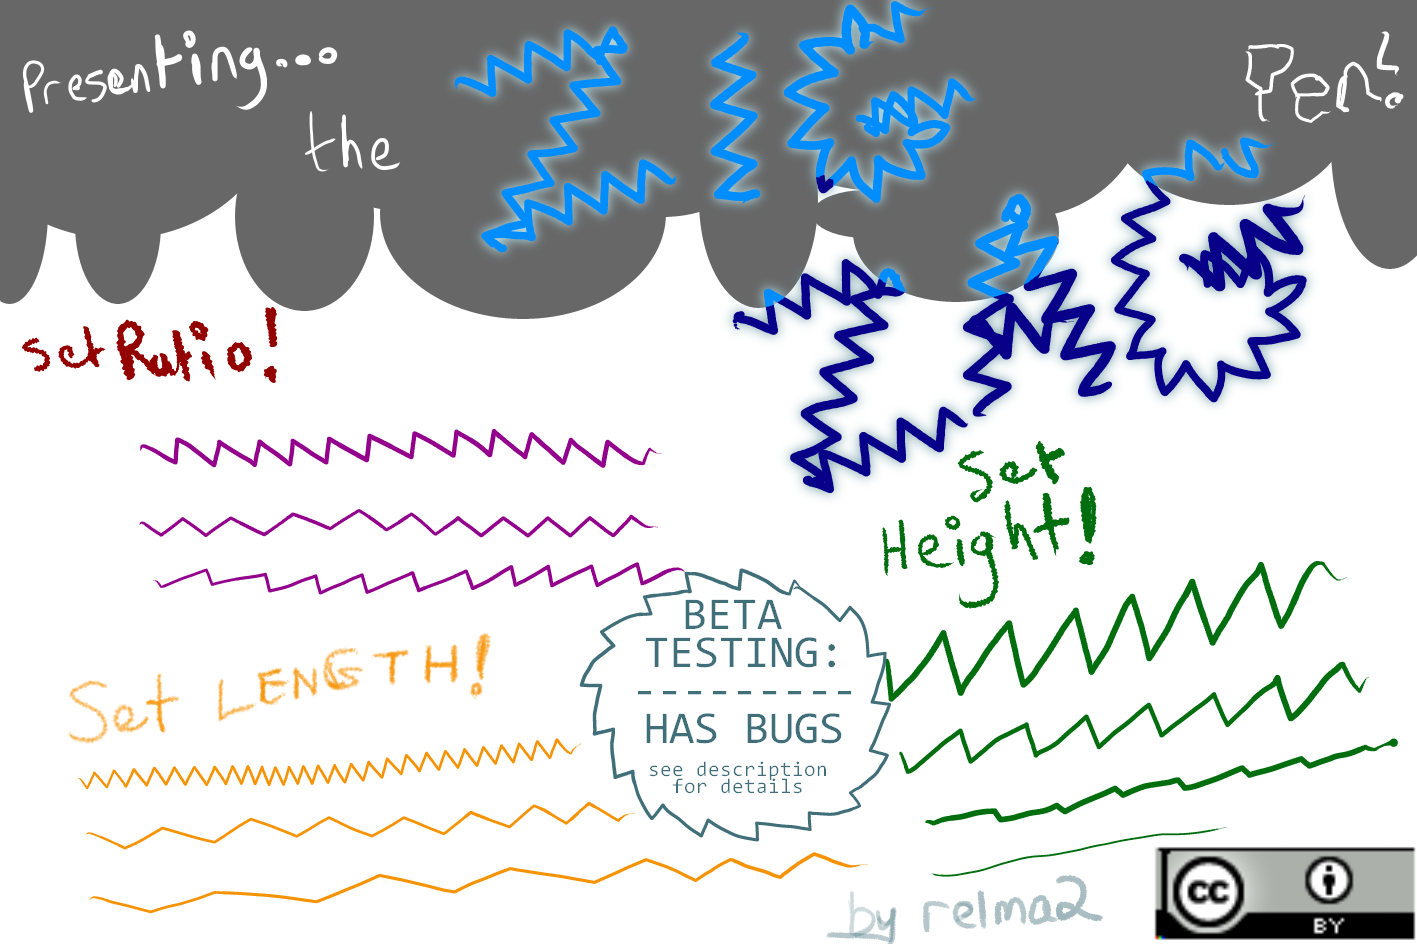 Presenting...
the
ZIG
ZAG
Pen!
Set Ratio!
Set
Height!
BETA
TESTING:
HAS BUGS
see description
for details
Set LENGTH!
by relma2
cc
BY